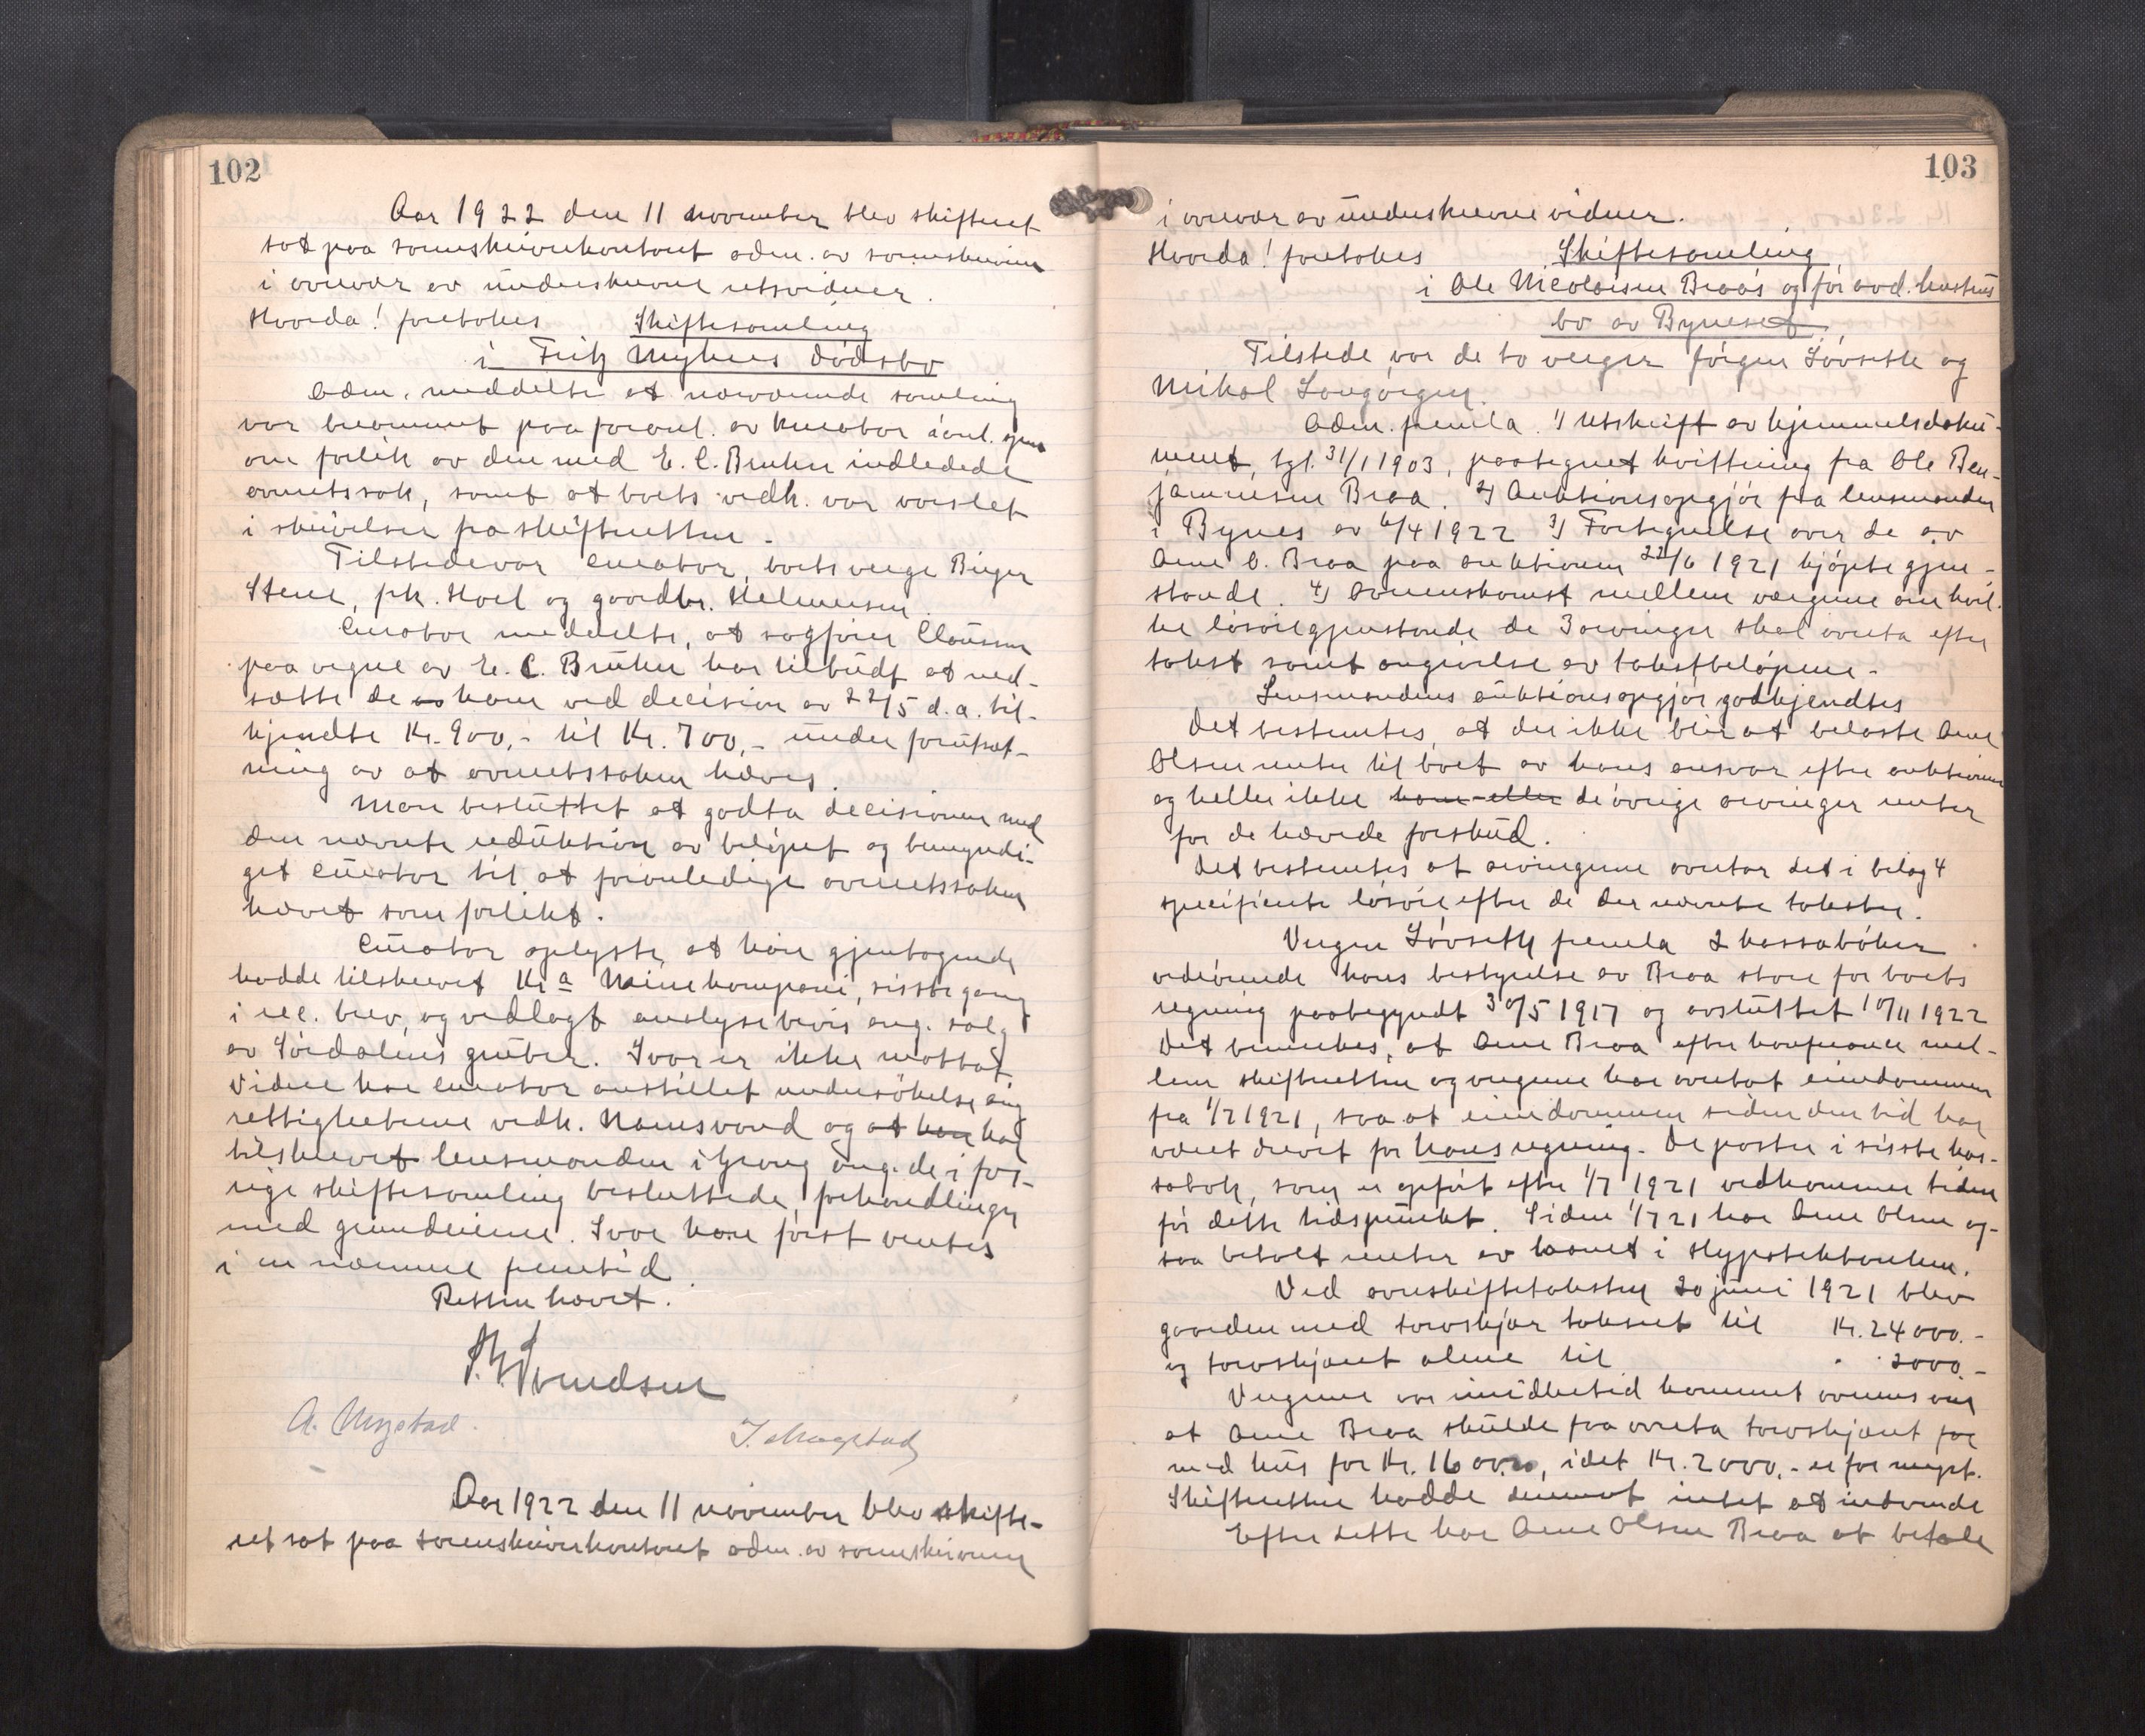 102
Aar 1922 den 11 november blev skifteret
sat paa sorenskriverkontoret adm. av sorenskriveren
i overvær av underskrevne retsvidner.
Hvorda! foretokes Skiftesamling
i Fritz Myhres dødsbo
Adm. meddelte at nærværende samling
var berammet paa foranl. av kurator i anl. spm
om forlik av den med E. C. Bruhn indledede
overretssak, samt at boets vedk. var varslet
i skrivelser fra skifteretten.
Tilstede var curator, boets verge Birger
Stene, frk. Hoel og gaardbr. Helmersen.
Curator meddelte, at sagfører Clausen
paa vegne av E. C. Bruhn har tilbudt at ned-
sætte de ham ved decision av 22/5 d.a. til-
kjendte Kr. 900,- til Kr. 700,- under forutsæt-
ning av at overretssaken hæves.
Man besluttet at godta decisionen med
den nævnte reduktion av beløpet og bemyndi-
get curator til at foranledige overretssaken
hævet som forlikt.
Curator oplyste, at han gjentagende
hadde tilskrevet Kra Minekompani, sisste gang
i rec. brev, og vedlagt analysebevis ang. salg
av Sørdalens gruber. Svar er ikke mottat
Videre har curator anstillet undersøkelse ang
rettigheterne vedk. Namsvand og at han har
tilskrevet lensmanden i Grong ang. de i for-
rige skiftesamling besluttede forhandlinger
med grundeierne. Svar kan først ventes
i en nærmere fremtid.
Retten hævet.
A. Mogstad.
J. Mogstad
Aar 1922 den 11 november blev skifte-
ret sat paa sorenskriverkontoret adm. av sorenskriveren
103
i overvær av underskrevne vidner.
Hvorda! foretokes Skiftesamling
i Ole Nicolaisen Braas og før avd. hustrus
bo av Byneset.
Tilstede var de to verger Jørgen Løvseth og
Mikal Langørgen.
Adm. femla. 1) Utskrift av hjemmelsdoku-
ment, tgl. 31/1 1903, paategnet kvittering fra Ole Ben-
jaminsen Braa. 2) Auktionsopgjør fra lensmanden
i Bynes av 6/4 1922 3) Fortegnelse over de av
Arne O. Braa paa auktionen 22/6 1921 kjøpte gjen-
stande. 4) Overenskomst mellem vergerne om hvil-
ke løsøregjenstande de 3 arvinger skal overta efter
takst samt angivelse av takstbeløpene.
Lensmandens auktionsopgjør godkjendtes
Det bestemtes, at der ikke blir at belaste Arne
Olsen renter til boet av hans ansvar efter auktionen
og heller ikke ham eller de øvrige arvinger renter
for de hævede forskud.
Det bestemtes at arvingerne overtar det i bilag 4
specificerte løsøre efter de der nævnte takster.
Vergen Løvseth femla 2 kassabøker
vedrørende hans bestyrelse av Braa store for boets
regning paabegyndt 30/5 1917 og avsluttet 10/11 1922
Det bemerkes, at Arne Braa efter konferance mel-
lem skifteretten og vergerne har overtat eiendommen
fra 1/7 1921, saa at eiendommen siden den tid har
været drevet for hans regning. De poster i sisste kas-
sabok, som er opført efter 1/7 1921 vedkommer tiden
før dette tidspunkt. Siden 1/7 21 har Arne Olsen og-
saa betalt renter av laanet i Hypotekbanken.
Ved arveskiftetaksten 20 juni 1921 blev
gaarden med torvskjær taksert til Kr. 24000.-
og torvskjæret alene til " 2000.-
Vergerne var imidlertid kommet overens om
at Arne Braa skulde faa overta torvskjæret for
med hus for Kr. 1600.00, idet Kr. 2000.- er for meget.
Skifteretten hadde derimot intet at indvende
Efter dette har Arne Olsen Braa at betale